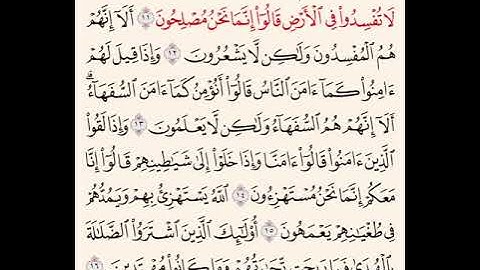 لَا تُفْسِدُوا۟ فِى ٱلْأَرْضِ قَالُوٓا۟ إِنَّمَا نَحْنُ مُصْلِحُونَ ١١ أَلَآ إِنَّهُمْ
هُمُ ٱلْمُفْسِدُونَ وَلَٰكِن لَّا يَشْعُرُونَ ١٢ وَإِذَا قِيلَ لَهُمْ
ءَامِنُوا۟ كَمَآ ءَامَنَ ٱلنَّاسُ قَالُوٓا۟ أَنُؤْمِنُ كَمَآ ءَامَنَ ٱلسُّفَهَآءُ ۗ
أَلَآ إِنَّهُمْ هُمُ ٱلسُّفَهَآءُ وَلَٰكِن لَّا يَعْلَمُونَ ١٣ وَإِذَا لَقُوا۟
ٱلَّذِينَ ءَامَنُوا۟ قَالُوٓا۟ ءَامَنَّا وَإِذَا خَلَوْا۟ إِلَىٰ شَيَٰطِينِهِمْ قَالُوٓا۟ إِنَّا
مَعَكُمْ إِنَّمَا نَحْنُ مُسْتَهْزِءُونَ ١٤ ٱللَّهُ يَسْتَهْزِئُ بِهِمْ وَيَمُدُّهُمْ
فِى طُغْيَٰنِهِمْ يَعْمَهُونَ ١٥ أُو۟لَٰٓئِكَ ٱلَّذِينَ ٱشْتَرَوُا۟ ٱلضَّلَٰلَةَ
بِٱلْهُدَىٰ فَمَا رَبِحَت تِّجَٰرَتُهُمْ وَمَا كَانُوا۟ مُهْتَدِينَ ١٦